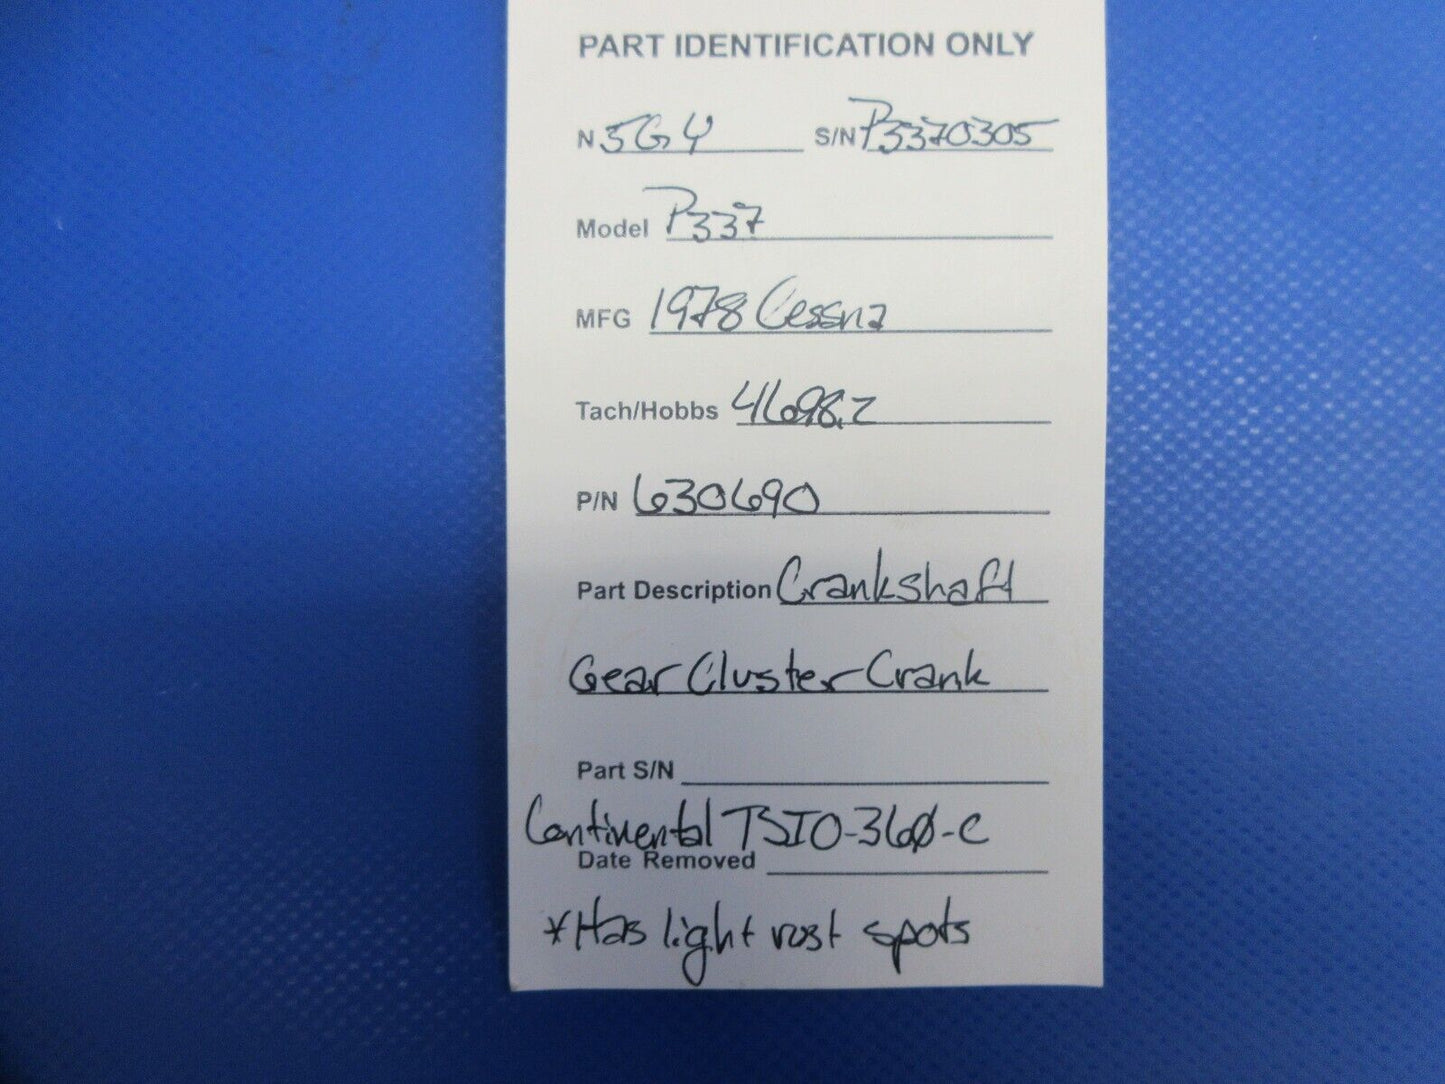 PART IDENTIFICATION ONLY
N 5GY S/N P3370305
Model P337
MFG 1978 Cessna
Tach/Hobbs 4698.2
P/N 630690
Part Description Crankshaft
Gear Cluster Crank
Part S/N
Continental TSIO-360-C
Date Removed
*Has light rust spots